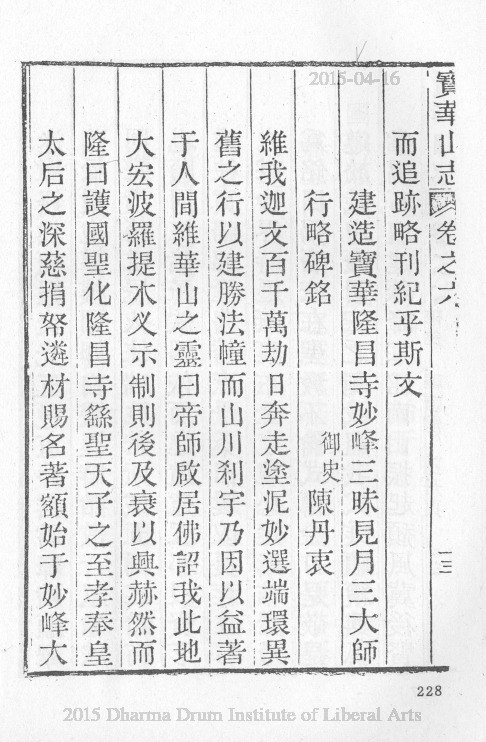 2015-04-16
寶華山志 卷之六
而追跡略刊紀乎斯文
建造寶華隆昌寺妙峰三昧見月三大師
行略碑銘 御史陳丹衷
維我迦文百千萬劫日奔走塗泥妙選端環異
舊之行以建勝法幢而山川剎宇乃因以益著
于人間維華山之靈曰帝師啟居佛詔我此地
大宏波羅提木义示制則後及衰以興赫然而
隆曰護國聖化隆昌寺繇聖天子之至孝奉皇
太后之深慈捐帑遴材賜名著額始于妙峰大
一三
228
2015 Dharma Drum Institute of Liberal Arts